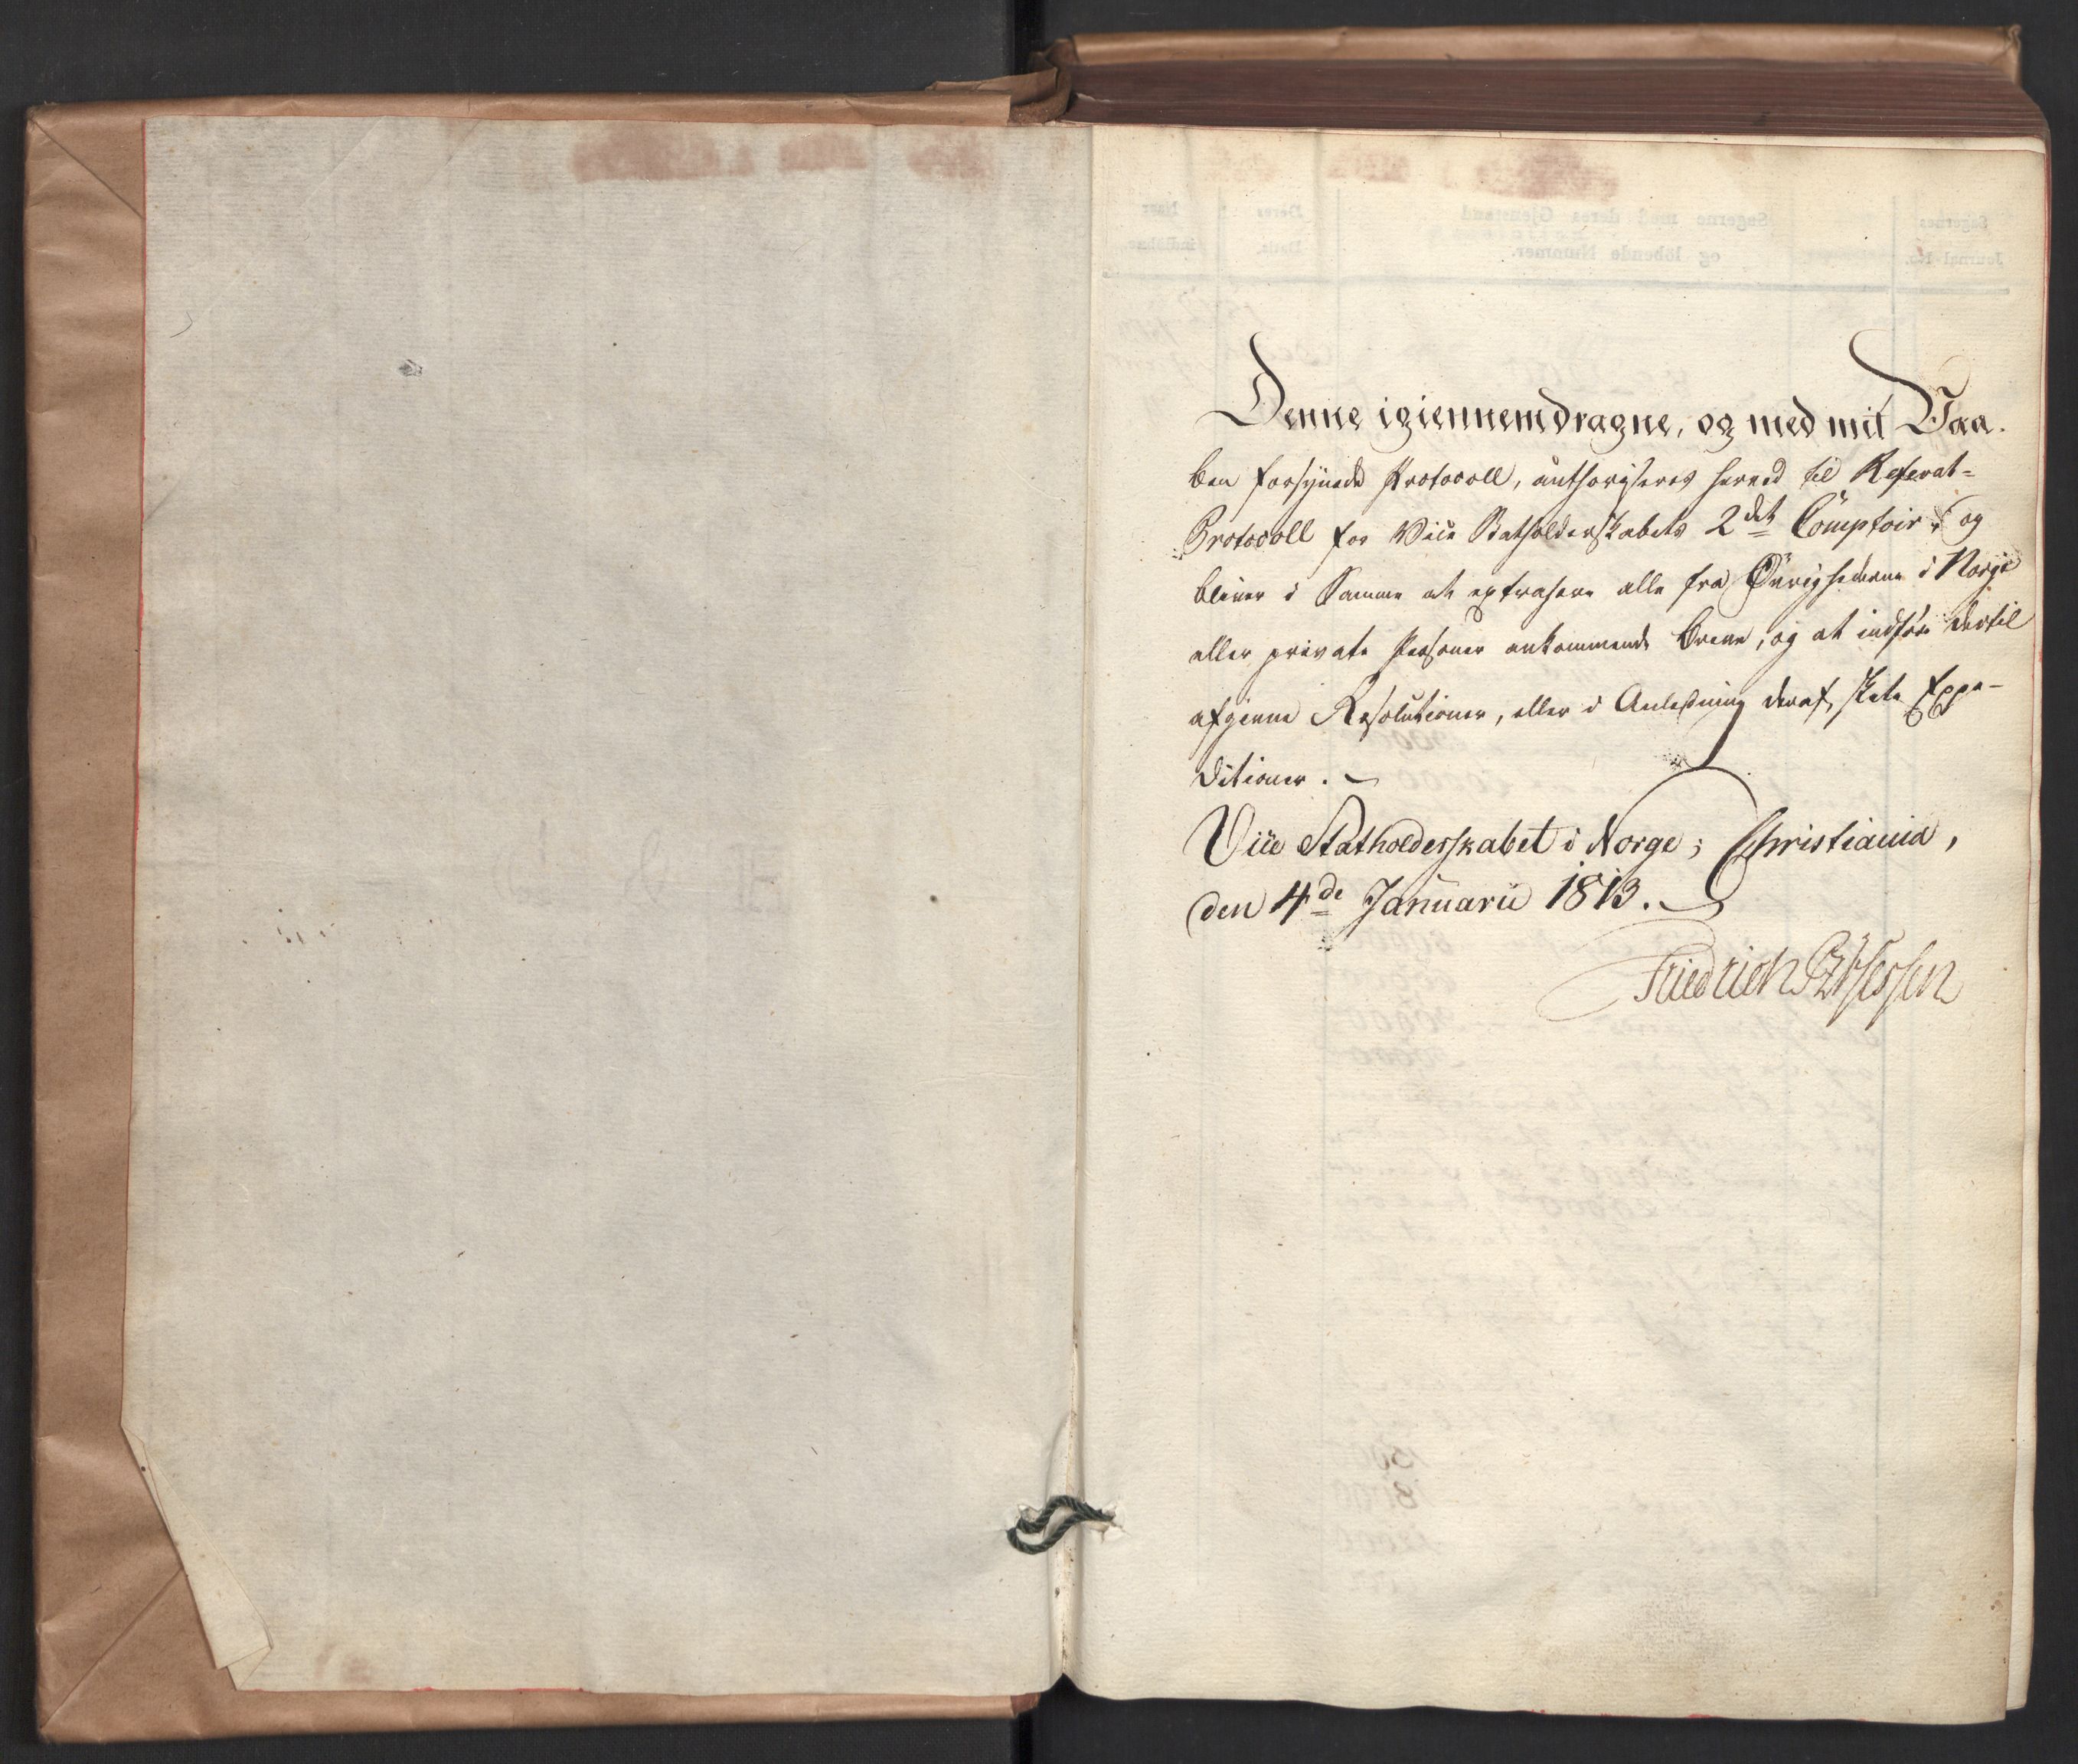 Denne igiennemdragne, og med mit Vaa-
ben forsynede Protocoll, authoriseres herved til Referat-
Protocoll for Vice Statholderskabets 2det Comptoir, og
bliver i Samme at extrahere alle fra Øvrighederne i Norge
eller private Personer ankommende Breve, og at indføre dertil
afgivne Resolutioner, eller i Anledning deraf, skete Expe-
ditioner. –
Vice Statholderskabet i Norge; Christiania,
den 4de Januarii 1813.
Friedrich PzHessen